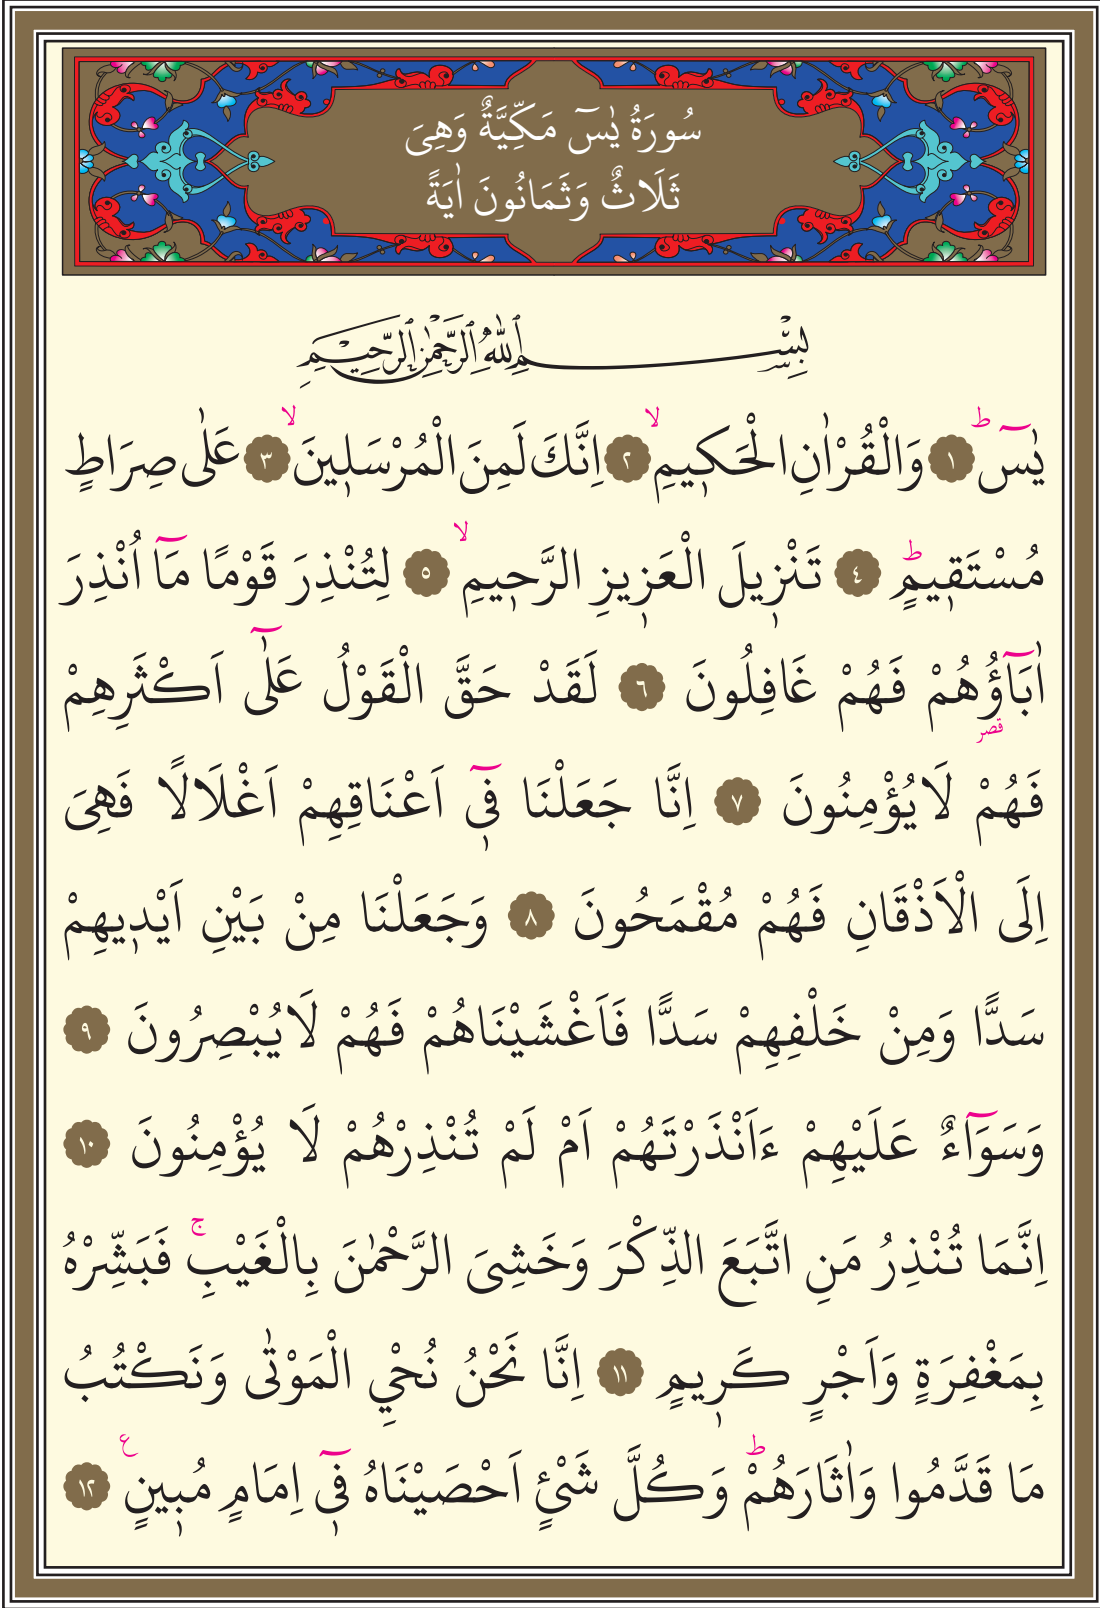 سُورَةُ يٰسٓ مَكِّيَّةٌ وَهِىَ
ثَلَاثٌ وَثَمَانُونَ اٰيَةً
بِسْمِ اللّٰهِ الرَّحْمٰنِ الرَّحِيمِ
يٰسٓ ۜط ١ وَالْقُرْاٰنِ الْحَكٖيمِ ۙ ٢ اِنَّكَ لَمِنَ الْمُرْسَلٖينَ ۙ ٣ عَلٰى صِرَاطٍ
مُسْتَقٖيمٍ ط ٤ تَنْزٖيلَ الْعَزٖيزِ الرَّحٖيمِ ۙ ٥ لِتُنْذِرَ قَوْمًا مَٓا اُنْذِرَ
اٰبَٓاؤُ۬هُمْ فَهُمْ غَافِلُونَ ٦ لَقَدْ حَقَّ الْقَوْلُ عَلٰٓى اَكْثَرِهِمْ
قصر
فَهُمْ لَا يُؤْمِنُونَ ٧ اِنَّا جَعَلْنَا فٖٓى اَعْنَاقِهِمْ اَغْلَالًا فَهِىَ
اِلَى الْاَذْقَانِ فَهُمْ مُقْمَحُونَ ٨ وَجَعَلْنَا مِنْ بَيْنِ اَيْدٖيهِمْ
سَدًّا وَمِنْ خَلْفِهِمْ سَدًّا فَاَغْشَيْنَاهُمْ فَهُمْ لَا يُبْصِرُونَ ٩
وَسَوَٓاءٌ عَلَيْهِمْ ءَاَنْذَرْتَهُمْ اَمْ لَمْ تُنْذِرْهُمْ لَا يُؤْمِنُونَ ١٠
اِنَّمَا تُنْذِرُ مَنِ اتَّبَعَ الذِّكْرَ وَخَشِىَ الرَّحْمٰنَ بِالْغَيْبِ ۚ فَبَشِّرْهُ
بِمَغْفِرَةٍ وَاَجْرٍ كَرٖيمٍ ١١ اِنَّا نَحْنُ نُحْيِ الْمَوْتٰى وَنَكْتُبُ
مَا قَدَّمُوا وَاٰثَارَهُمْ ط وَكُلَّ شَىْءٍ اَحْصَيْنَاهُ فٖٓى اِمَامٍ مُبٖينٍ ع ١٢